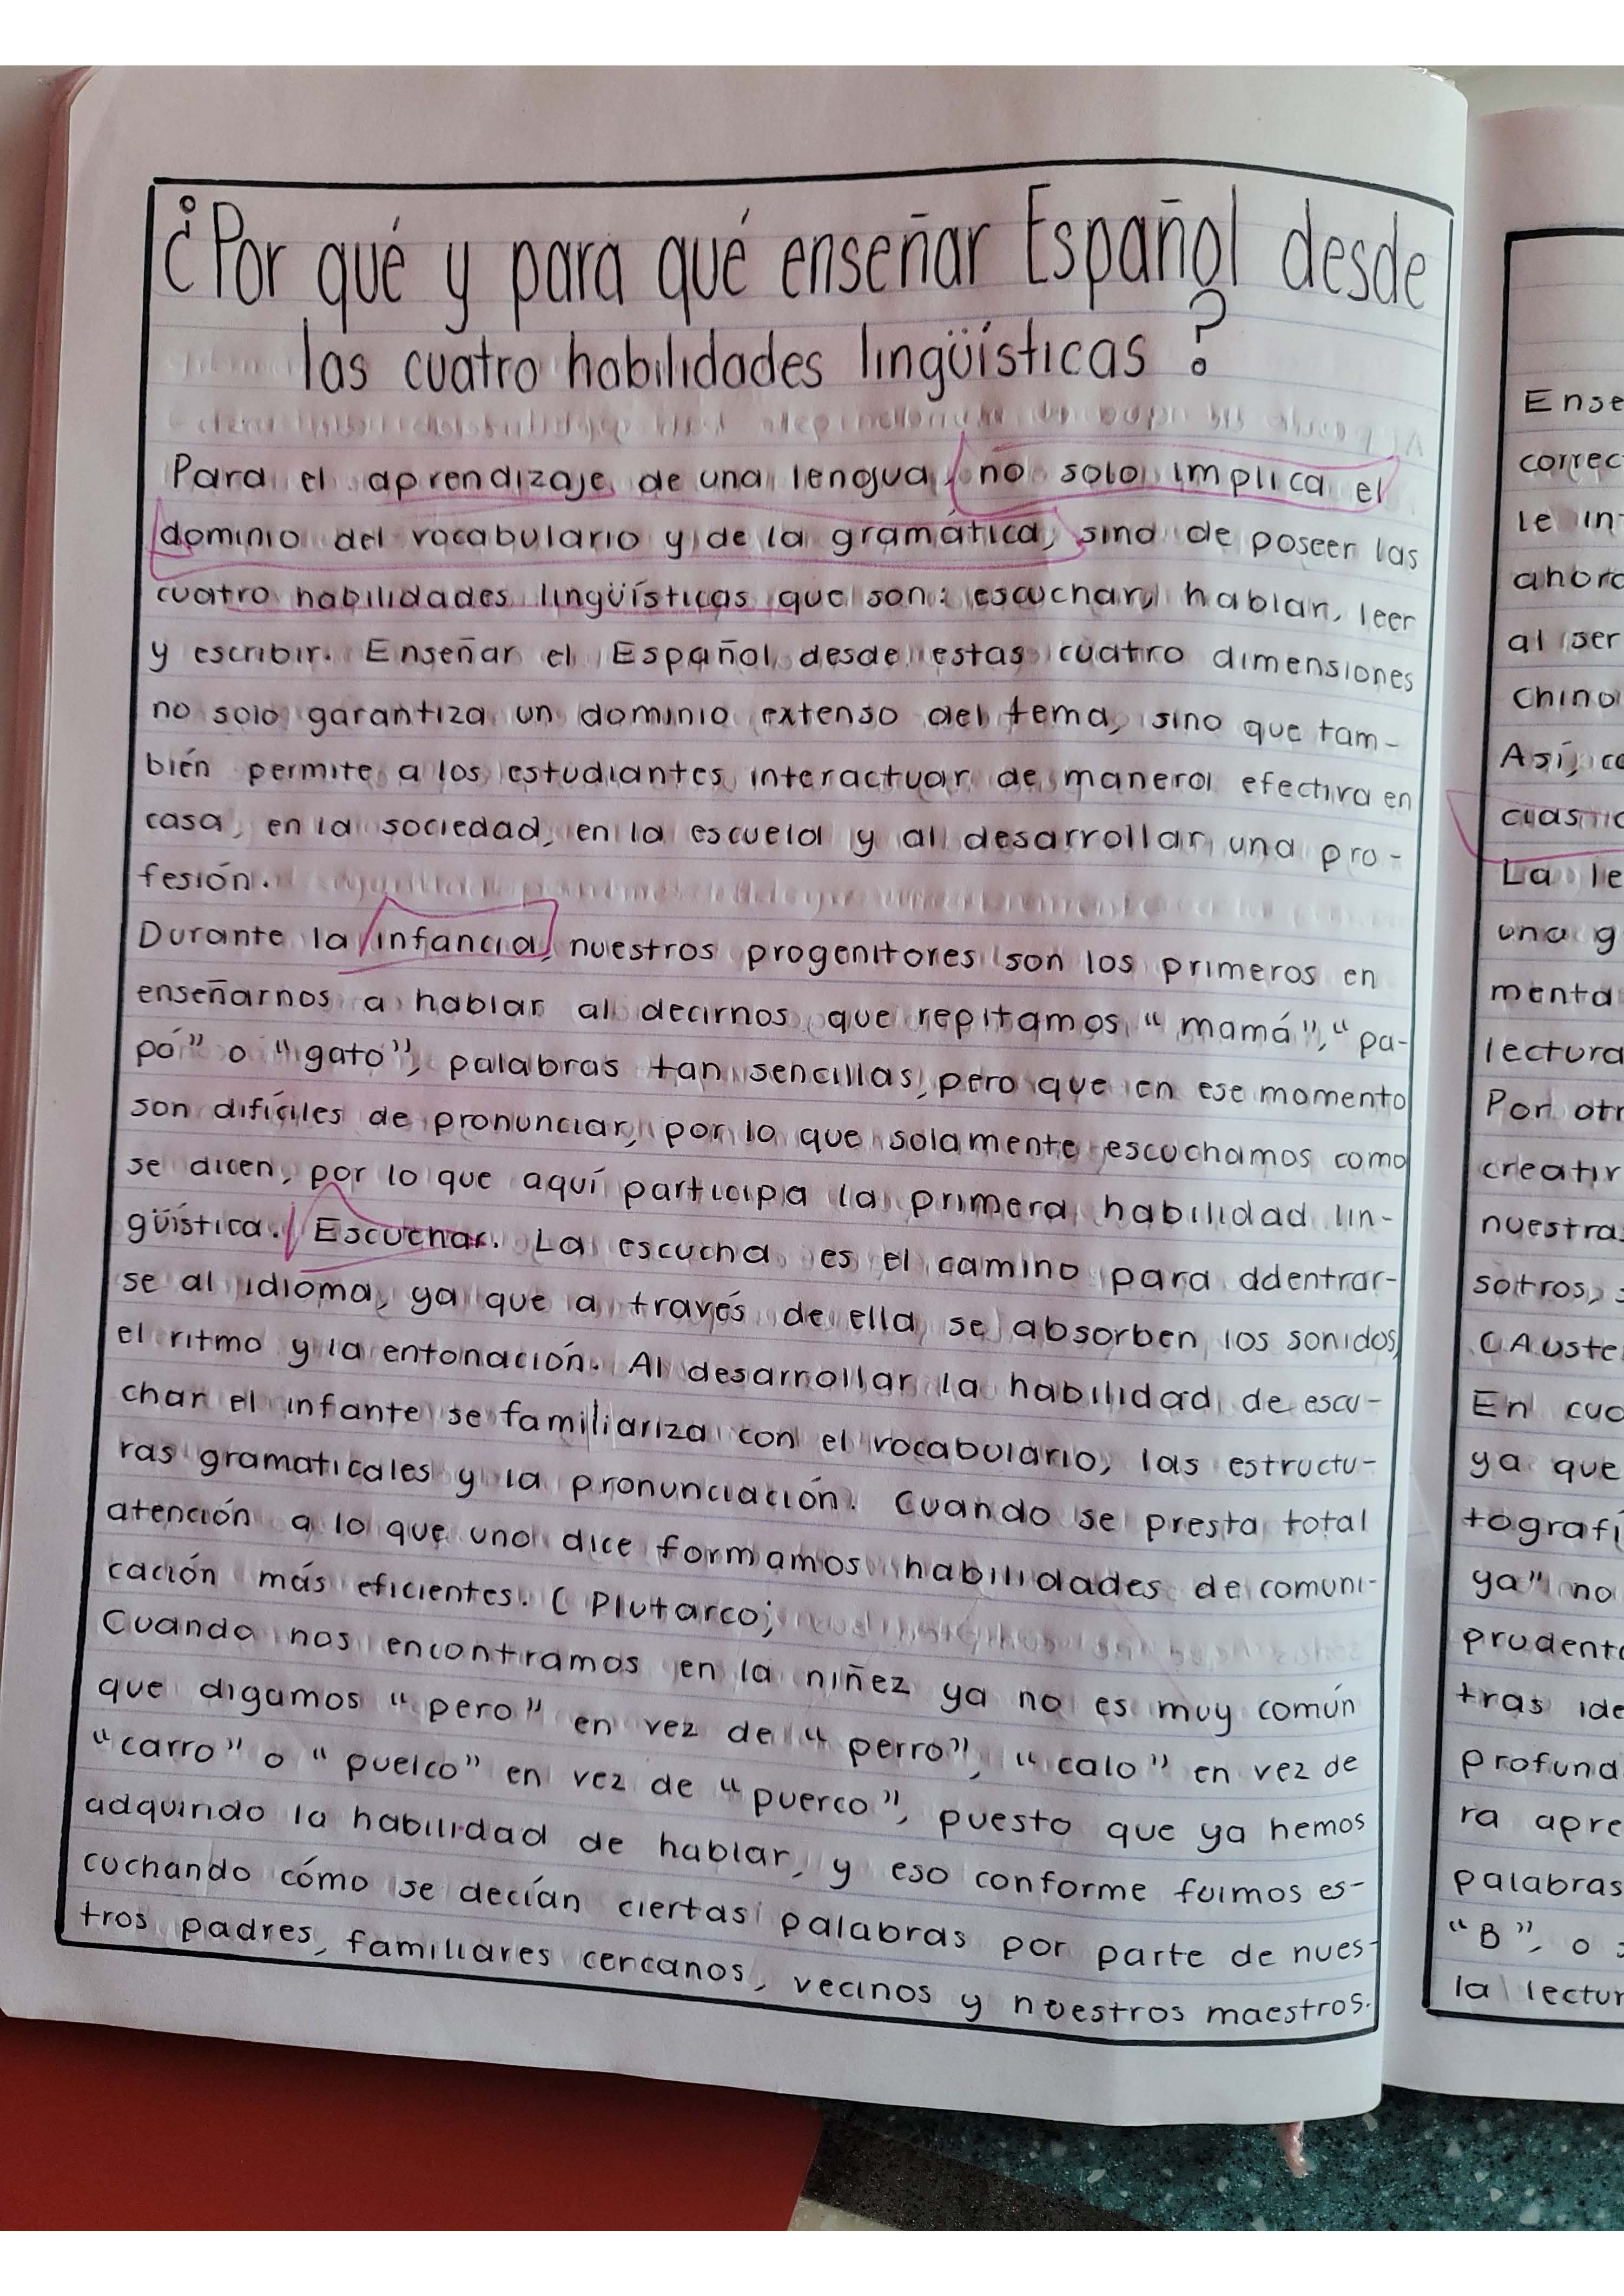 ¿Por qué y para qué enseñar Español desde
las cuatro habilidades lingüísticas?
Para el aprendizaje de una lengua, no solo implica el
dominio del vocabulario y de la gramática, sino de poseer las
cuatro habilidades lingüísticas que son: escuchar, hablar, leer
y escribir. Enseñar el Español desde estas cuatro dimensiones
no solo garantiza un dominio extenso del tema, sino que tam-
bién permite a los estudiantes interactuar de manera efectiva en
casa, en la sociedad, en la escuela y al desarrollar una pro-
fesión.
Durante la infancia, nuestros progenitores son los primeros en
enseñarnos a hablar al decirnos que repitamos "mamá", "pa-
pá" o "gato", palabras tan sencillas, pero que en ese momento
son difíciles de pronunciar, por lo que solamente escuchamos como
se dicen, por lo que aquí participa la primera habilidad lin-
güística. Escuchar. La escucha es el camino para adentrar-
se al idioma, ya que a través de ella se absorben los sonidos,
el ritmo y la entonación. Al desarrollar la habilidad de escu-
char el infante se familiariza con el vocabulario, las estructu-
ras gramaticales y la pronunciación. Cuando se presta total
atención a lo que uno dice formamos habilidades de comuni-
cación más eficientes. ( Plutarco;
Cuando nos encontramos en la niñez ya no es muy común
que digamos "pero" en vez de "perro", "calo" en vez de
"carro" o "puelco" en vez de "puerco", puesto que ya hemos
adquirido la habilidad de hablar, y eso conforme fuimos es-
cuchando cómo se decían ciertas palabras por parte de nues-
tros padres, familiares cercanos, vecinos y nuestros maestros.
Ense
correc
le in
ahora
al ser
chino
Así, co
cuas
La le
una g
menta
lectura
Por otr
creativ
nuestra
sotros, s
(Auste
En cua
ya que
tografí
ya" no
prudent
tras ide
profund
ra apre
palabras
"B", o
la lectur